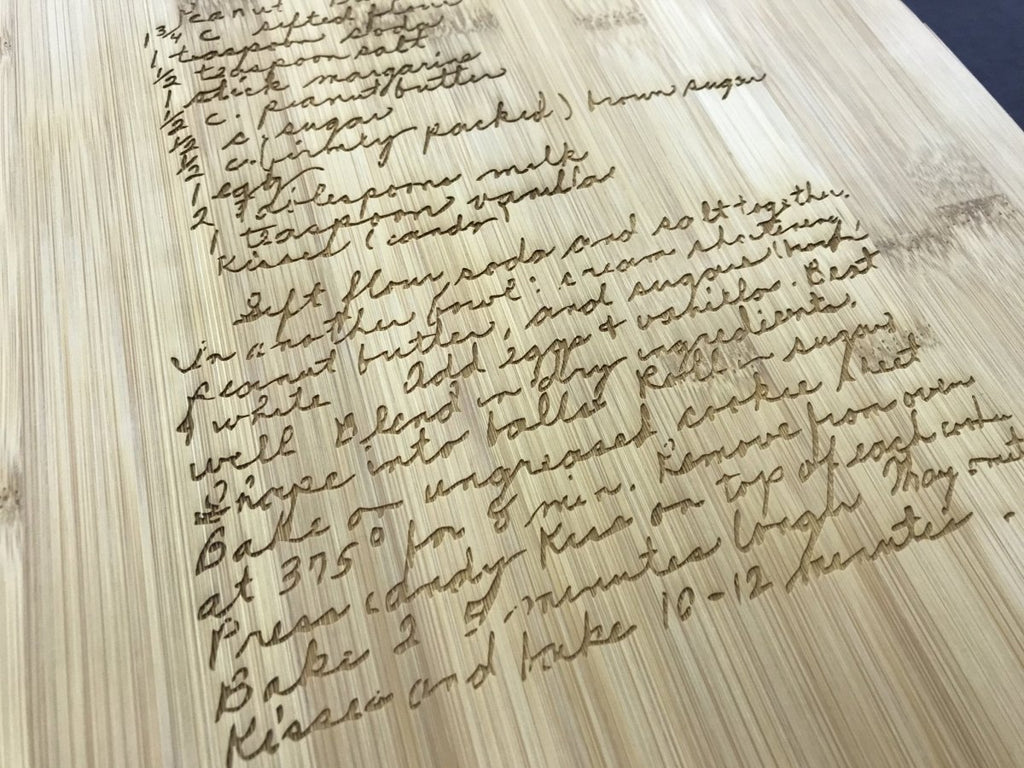 Peanut
1 3/4 c sifted flour
1 teaspoon soda
1/2 teaspoon salt
1 stick margarine
1/2 c. peanut butter
1/2 c. sugar
1/2 c. (firmly packed) brown sugar
1 egg
2 tablespoons milk
1 teaspoon vanilla
Kisses (candy)
Sift flour soda and salt together.
In another bowl: cream shortening,
peanut butter, and sugars (brown
& white Add eggs & vanilla. Beat
well Blend in dry ingredients.
Shape into balls Roll in sugar
Bake on ungreased cookie sheet
at 375° for 8 min. Remove from oven
Press candy Kiss on top of each cookie
Bake 2 5 minutes longer May omit
Kisses and bake 10-12 minutes.